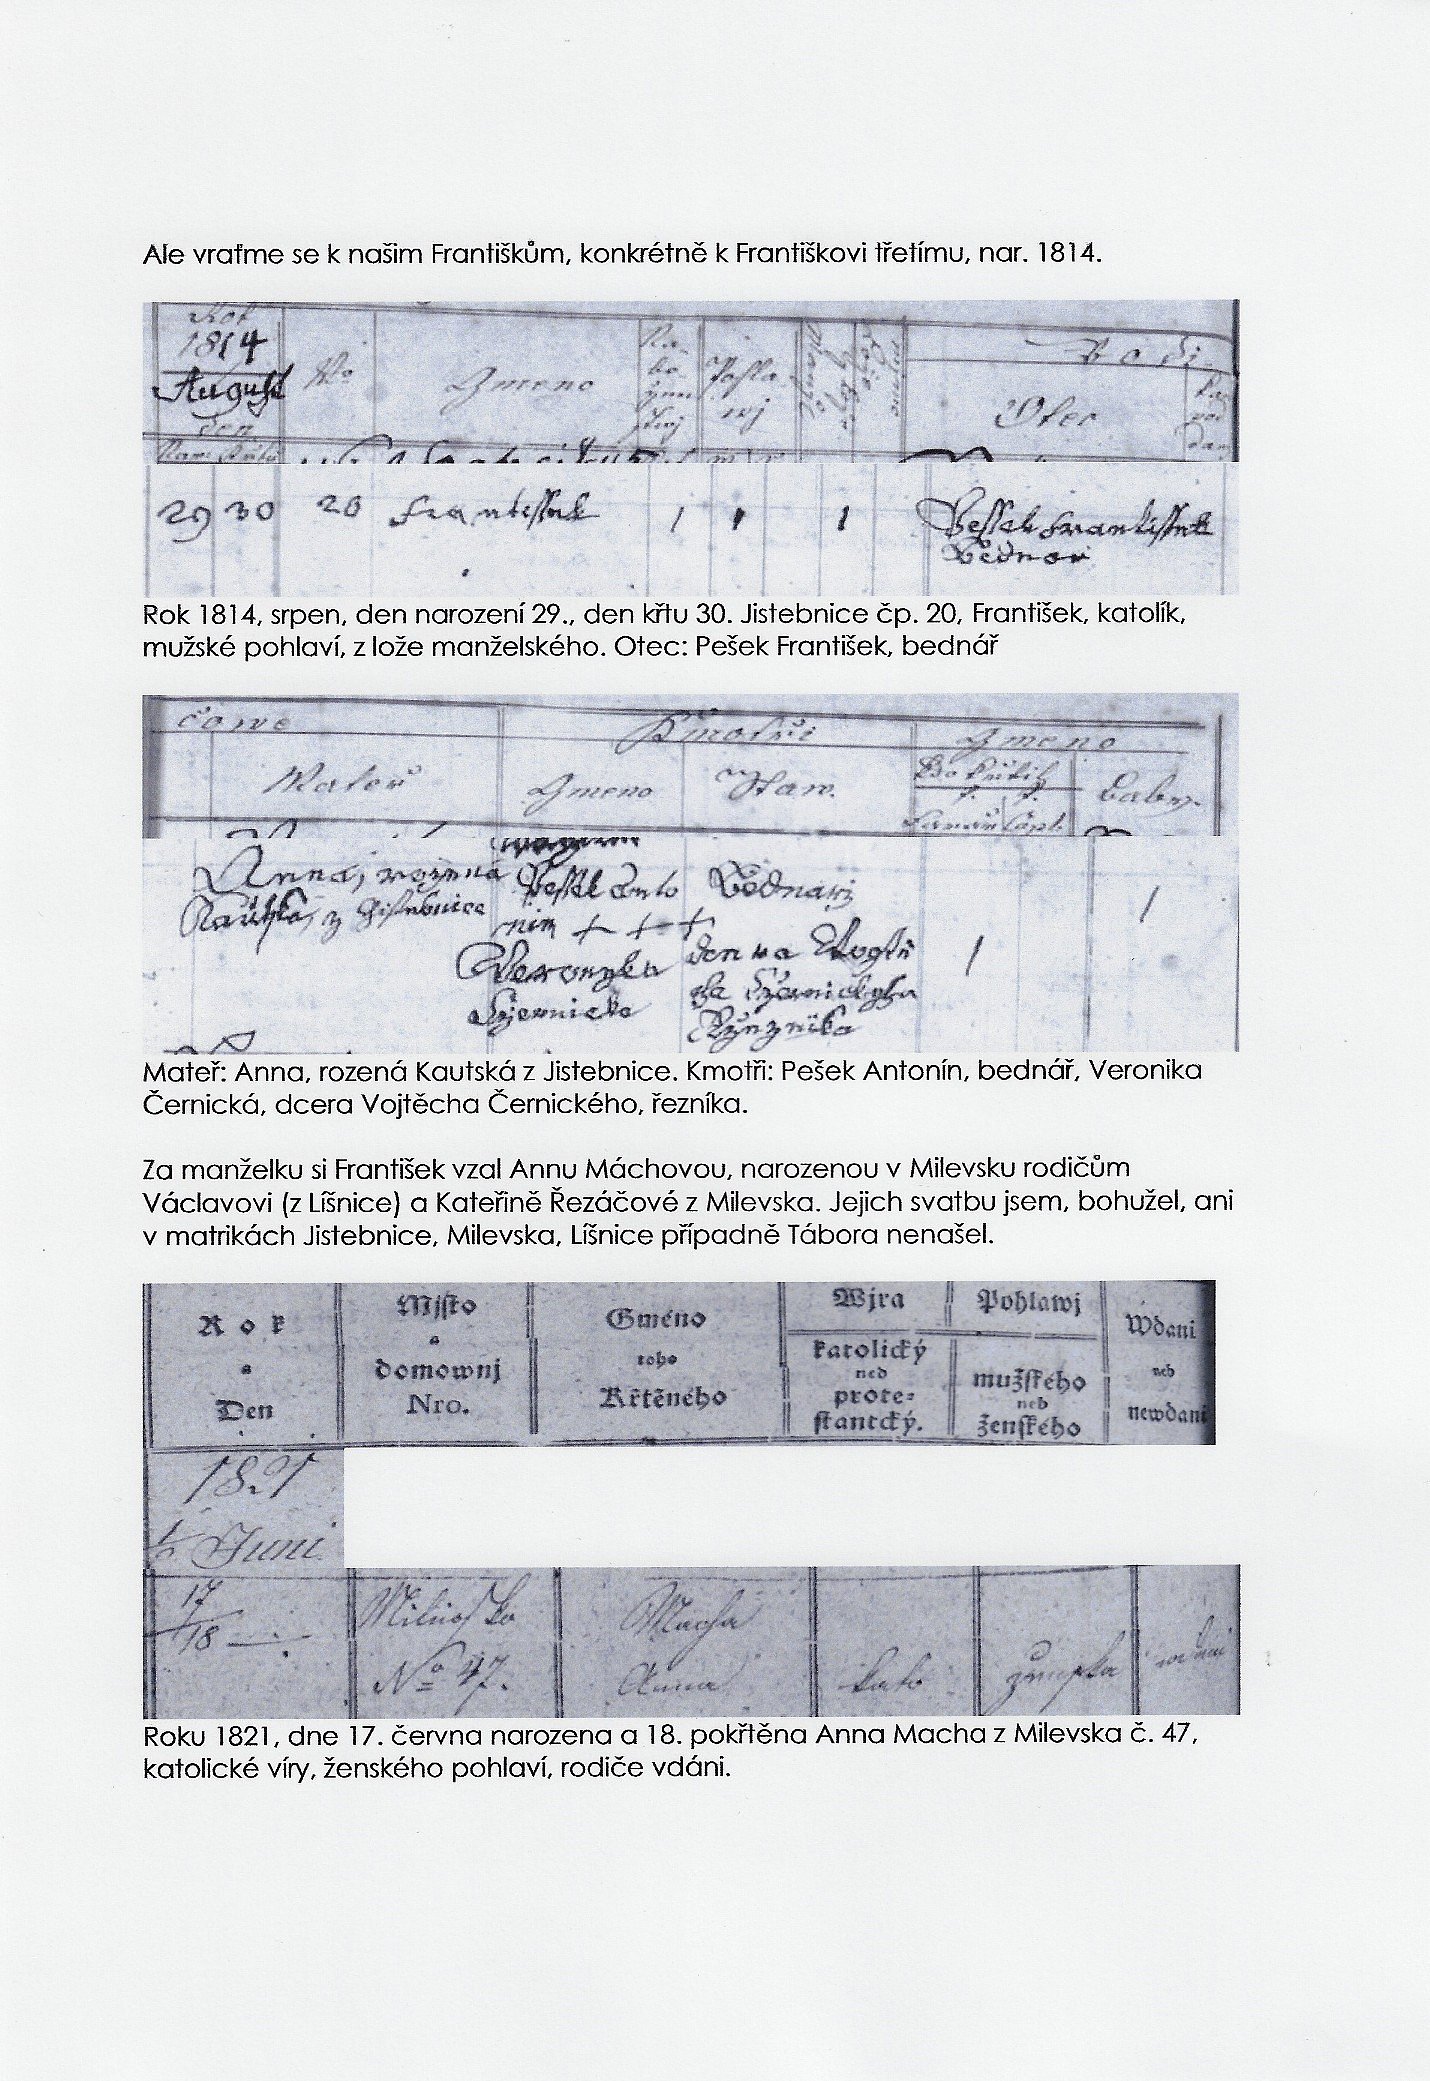 Ale vraťme se k našim Františkům, konkrétně k Františkovi třetímu, nar. 1814.
Rok
1814
August
den
No
Gméno
Pohla
wj
Rodi
Otec
29 30 20 Frantissek 1 1 1 Pessek Frantissek
Bednarz
Rok 1814, srpen, den narození 29., den křtu 30. Jistebnice čp. 20, František, katolík,
mužské pohlaví, z lože manželského. Otec: Pešek František, bednář
čowe Kmotři Gmeno
Mateř Gmeno Staw. Baby.
Anna, rozena Pessek Anto Bednarz 1
z Gistebnice nin + + +
Veronyka
1
Mateř: Anna, rozená Kautská z Jistebnice. Kmotři: Pešek Antonín, bednář, Veronika
Černická, dcera Vojtěcha Černického, řezníka.
Za manželku si František vzal Annu Máchovou, narozenou v Milevsku rodičům
Václavovi (z Líšnice) a Kateřině Řezáčové z Milevska. Jejich svatbu jsem, bohužel, ani
v matrikách Jistebnice, Milevska, Líšnice případně Tábora nenašel.
Rok
a
Den
Mjsto
a
domownj
Nro.
Gméno
toho
Křtěného
Wjra
katolický
neb
prote=
stantcký.
Pohlawj
mužského
neb
ženského
Wdani
neb
newdani
1821
Juni
17
18
Milewsko
No 47.
Macha
Anna
kato
Roku 1821, dne 17. června narozena a 18. pokřtěna Anna Macha z Milevska č. 47,
katolické víry, ženského pohlaví, rodiče vdáni.